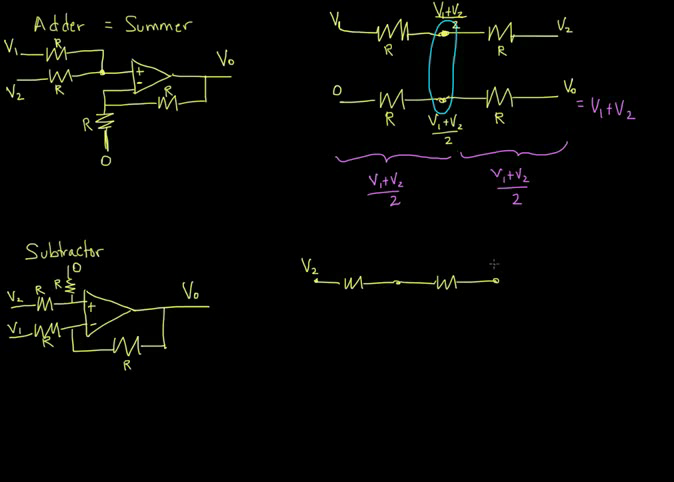 Adder = Summer
V₁
R
V₂
R
+
-
V₀
R
R
0
V₁
R
V₁+V₂/2
R
V₂
0
R
V₁+V₂/2
R
V₀ = V₁+V₂
V₁+V₂/2
V₁+V₂/2
Subtractor
0
R
V₂
R
V₁
R
+
-
V₀
R
V₂